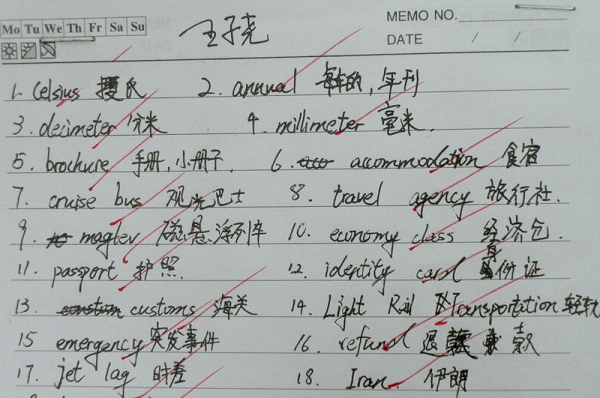 MEMO NO.
Mo Tu We Th Fr Sa Su
DATE / /
王子尧
1. Celsius 摄氏 2. annual 每年的,年刊
3. decimeter 分米 4. millimeter 毫米.
5. brochure 手册,小册子 6. accommodation 食宿
7. cruise bus 观光巴士 8. travel agency 旅行社.
9. maglev 磁悬浮列车 10. economy class 经济仓.
11. passport 护照 12. identity card 身份证
13. customs 海关 14. Light Rail Transportation 轻轨
15 emergency 突发事件 16. refund 退款
17. jet lag 时差 18. Iran 伊朗